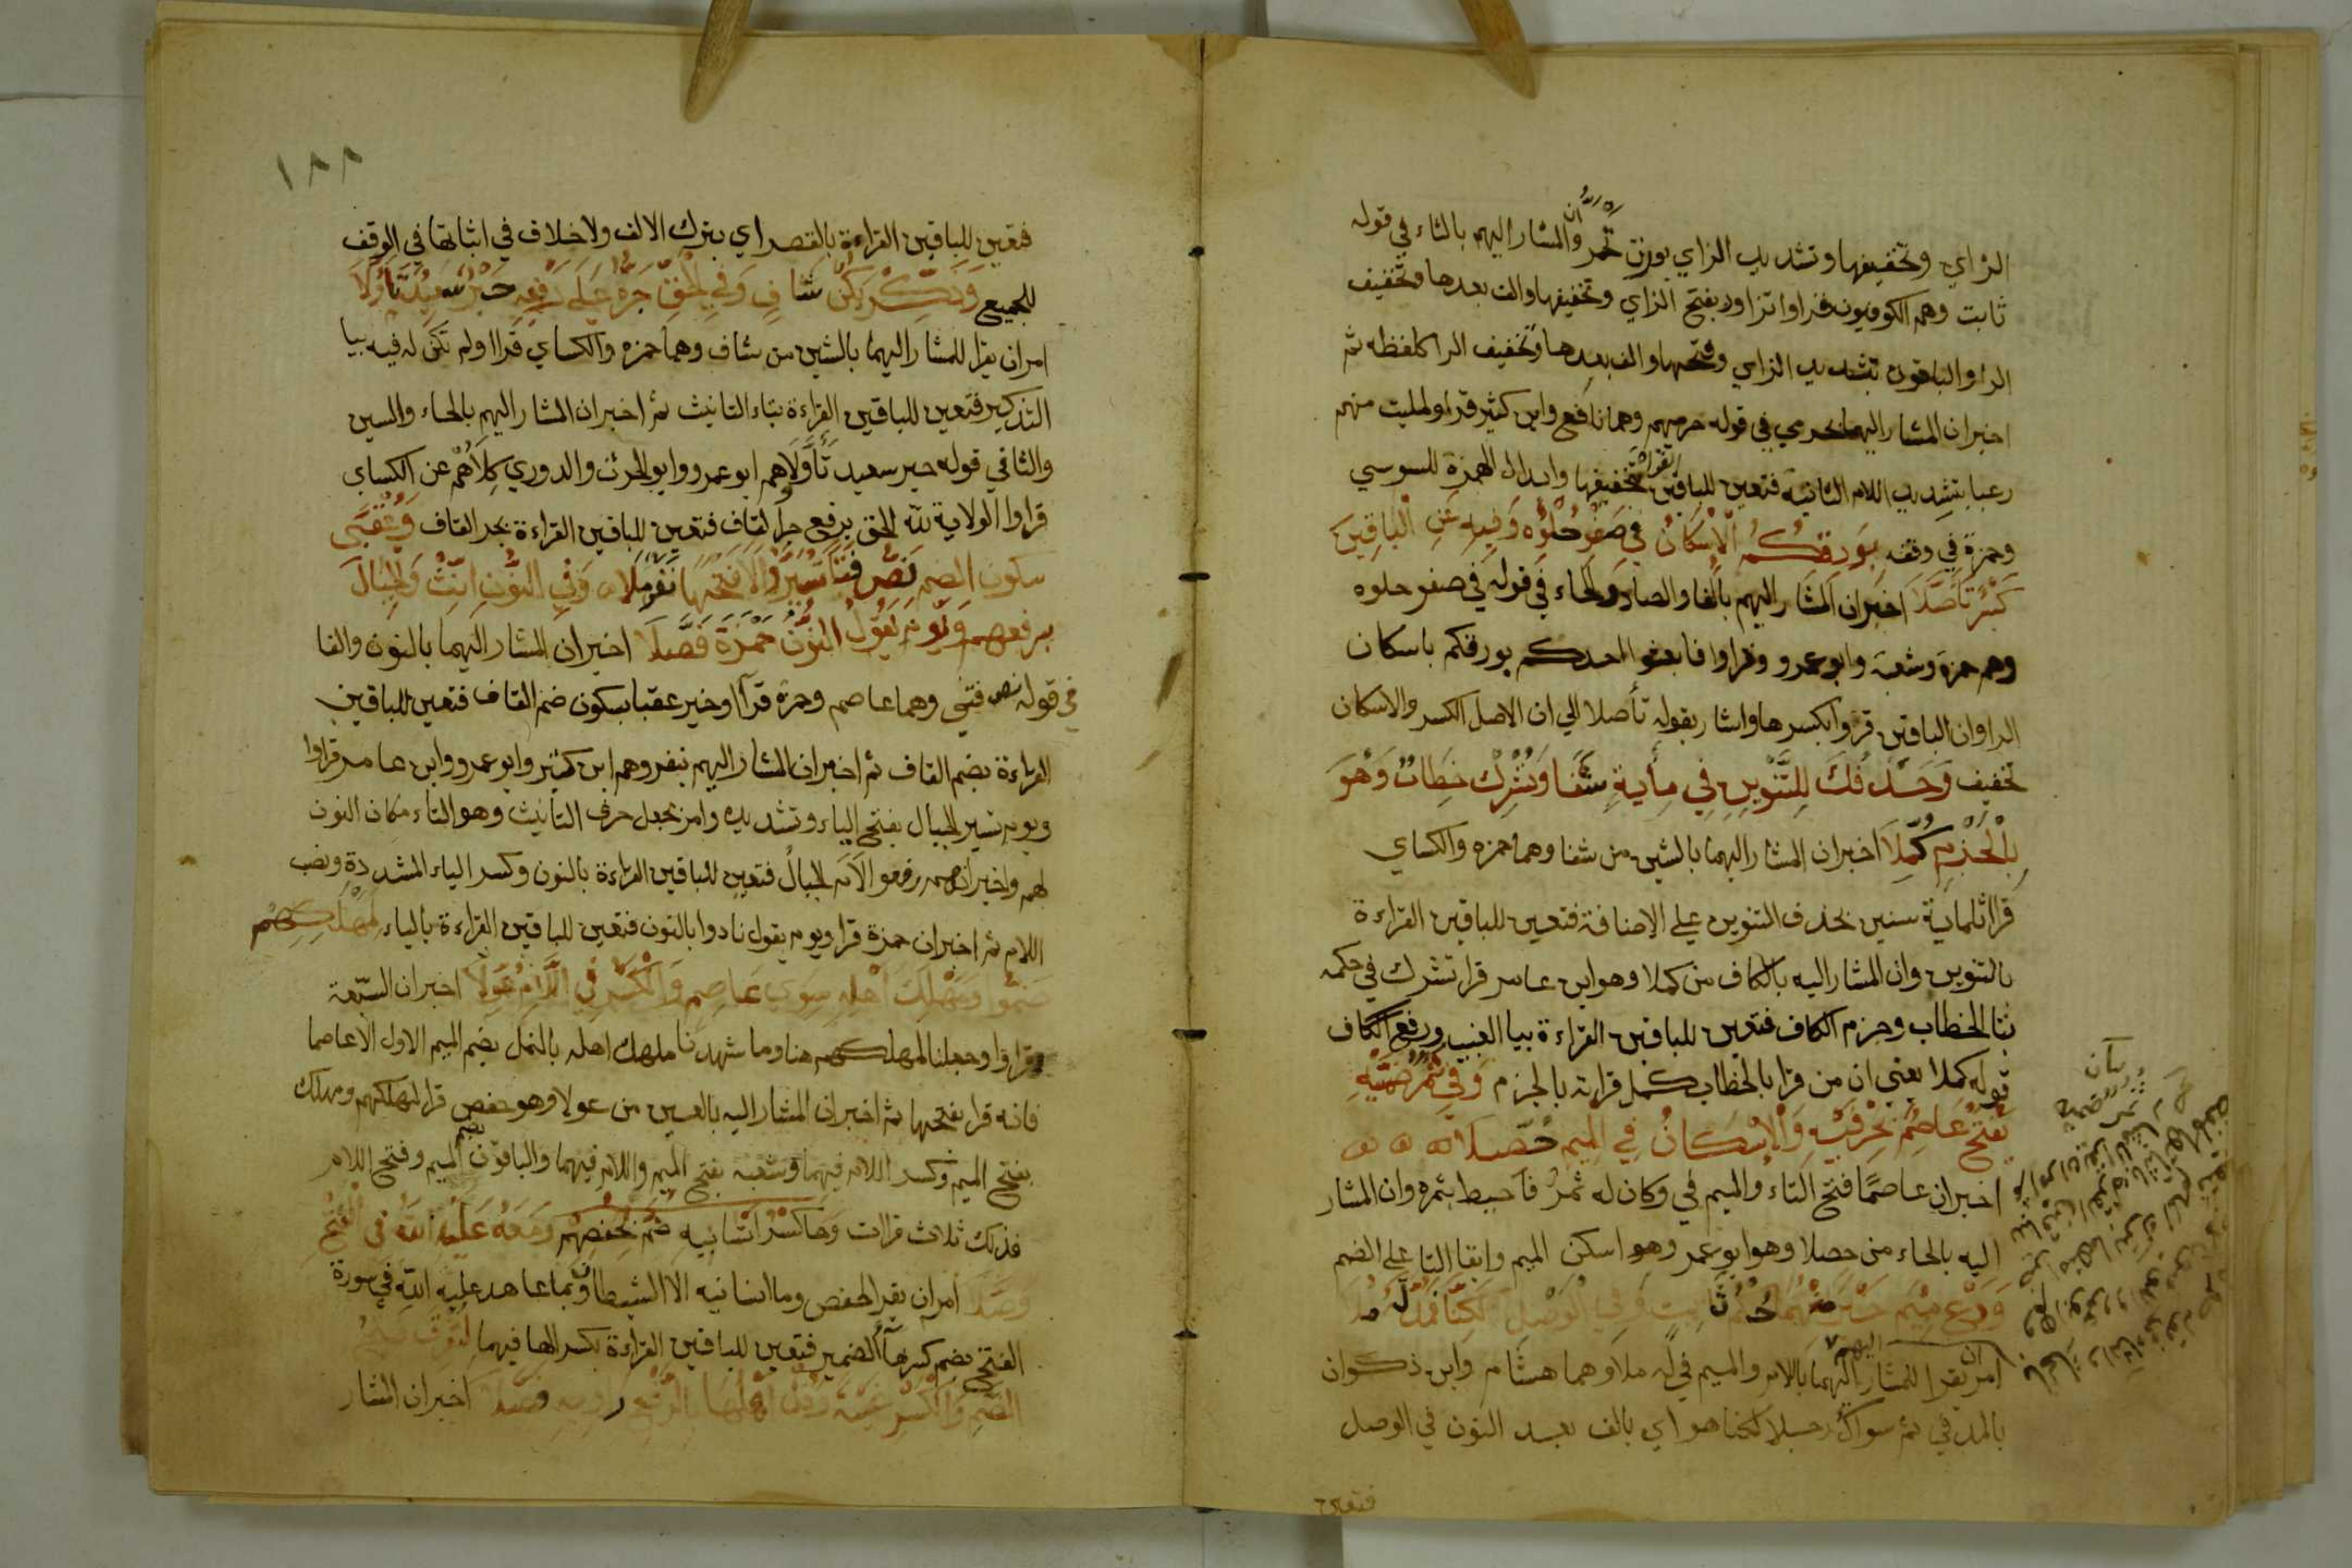 الزاي وتخفيفها وتشديد الزاي بوزن تحمر وان المشار اليهم بالثاء في قوله
ثابت وهم الكوفيون قراوا تزاور بفتح الزاي وتخفيفها والف بعدها وتخفيف
الرا والباقون بتشديد الزاي وفتحها والف بعدها وتخفيف الرا كلفظه ثم
اخبر ان المشار اليهما بحرمي في قوله حرميهم وهما نافع وابن كثير قرا ولمليت منهم
رعبا بتشديد اللام الثانية فتعين للباقين القراة بتخفيفها وابدال الهمزة للسوسي
وحمزة في وقفه بورقكم الاسكان في صفو حلوه وفيه عن الباقين
كسر تأصلا اخبر ان المشار اليهم بالفا والصاد والحاء في قوله في صفو حلوه
وهم حمزة وشعبة وابو عمرو وقراوا فابعثوا احدكم بورقكم باسكان
الرا وان الباقين قرؤا بكسرها واشار بقوله تأصلا الي ان الاصل الكسر والاسكان
تخفيف وحذفك للتنوين في مأية شفا وتشرك خطاب وهو
بالجزم كملا اخبر ان المشار اليهما بالشين من شفا وهما حمزه والكساي
قرا ثلماية سنين بحذف التنوين علي الاضافة فتعين للباقين القراءة
بالتنوين وان المشار اليه بالكاف من كملا وهو ابن عامر قرا تشرك في حكمه
بتا الخطاب وجزم الكاف فتعين للباقين القراءة بيا الغيب ورفع الكاف
قوله كملا يعني ان من قرا بالخطاب كمل قراته بالجزم وفي ثمر ضميه
يفتح عاصم بحرفيه والاسكان في الميم حصلا
اخبر ان عاصما فتح الثاء والميم في وكان له ثمر فاحيط بثمره وان المشار
اليه بالحاء من حصلا وهو ابو عمرو وهو اسكن الميم وابقا الثا علي الضم
ودع ميم خيرا منهما حكم ثابت وفي الوصل لكنا فمد له ملا
امر ان يقرا للمشار اليهما باللام والميم في له ملا وهما هشام وابن ذكوان
بالمد في ثم سواك رجلا لكنا هو اي بالف بعد النون في الوصل
فتعين
١٨٨
فتعين للباقين القراءة بالقصر اي بترك الالف ولا خلاف في اثباتها في الوقف
للجميع وذكر يكن شاف وفي الحق جره علي رفعه حبر سعيد تأولا
امر ان يقرا للمشار اليهما بالشين من شاف وهما حمزه والكساي قراا ولم تكن له فيه بيا
التذكير فتعين للباقين القراءة بتاء التانيث ثم اخبر ان المشار اليهم بالحاء والسين
والتا في قوله حبر سعيد تأولا هم ابو عمرو وابو الحرث والدوري كلاهم عن الكساي
قراوا الولاية لله الحق برفع جر القاف فتعين للباقين القراءة بجر القاف وعقبى
سكون الضم نص فتى نسير والا فتحها نفر ملا وفي النون انث والجبال
برفعهم ويوم يقول النون حمزة فصلا اخبر ان المشار اليهما بالنون والفا
في قوله نص فتى وهما عاصم وحمزه قراا وخير عقبا بسكون ضم القاف فتعين للباقين
القراءة بضم القاف ثم اخبر ان المشار اليهم بنفر وهم ابن كثير وابو عمرو وابن عامر قراوا
ويوم تسير الجبال بفتح الياء وتشديده وامر بجعل حرف التأنيث وهو التاء مكان النون
لهم واخبر انهم رفعوا لام الجبال فتعين للباقين القراءة بالنون وكسر الياء المشددة ونصب
اللام ثم اخبر ان حمزة قرا ويوم نقول نادوا بالنون فتعين للباقين القراءة بالياء لمهلكهم
ضموا ومهلك اهله سوي عاصم والكسر في اللام عولا اخبر ان السبعة
قراوا وجعلنا لمهلكهم هنا وما شهدنا مهلك اهله بالنمل بضم الميم الاول الا عاصما
فانه قرا بفتحها ثم اخبر ان المشار اليه بالعين من عولا وهو حفص قرا لمهلكهم ومهلك
بفتح الميم وكسر اللام فيهما وشعبه بفتح الميم واللام فيهما والباقون بضم الميم وفتح اللام
فذلك ثلاث قراات وها كسر انسانيه ضم لحفصهم ومعه عليه الله في الفتح
وصلا امر ان يقرا لحفص وما انسانيه الا الشيطان وبما عاهد عليه الله في سورة
الفتح بضم كسر هاء الضمير فتعين للباقين القراءة بكسر الها فيهما لتغرق فتح
الضم والكسر غيبة وقل اهلها بالرفع راويه فصلا اخبر ان المشار